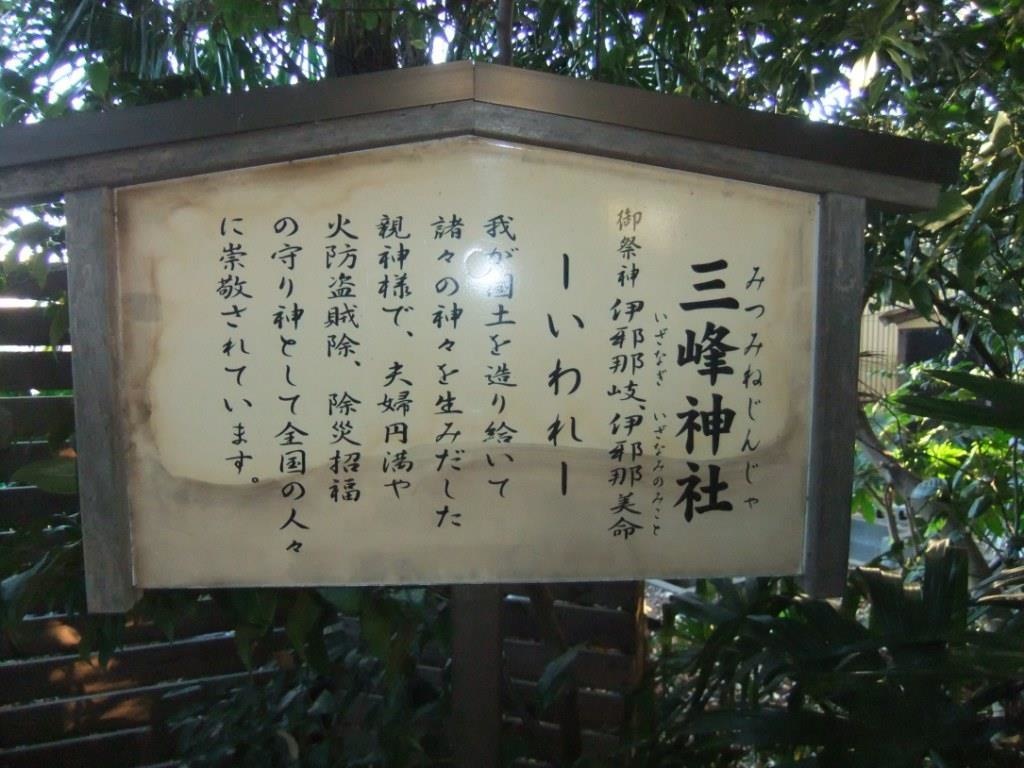 みつみねじんじゃ
三峰神社
いざなぎ いざなみのみこと
御祭神 伊邪那岐、伊邪那美命
ーいわれー
我が国土を造り給いて
諸々の神々を生みだした
親神様で、夫婦円満や
火防盗賊除、除災招福
の守り神として全国の人々
に崇敬されています。